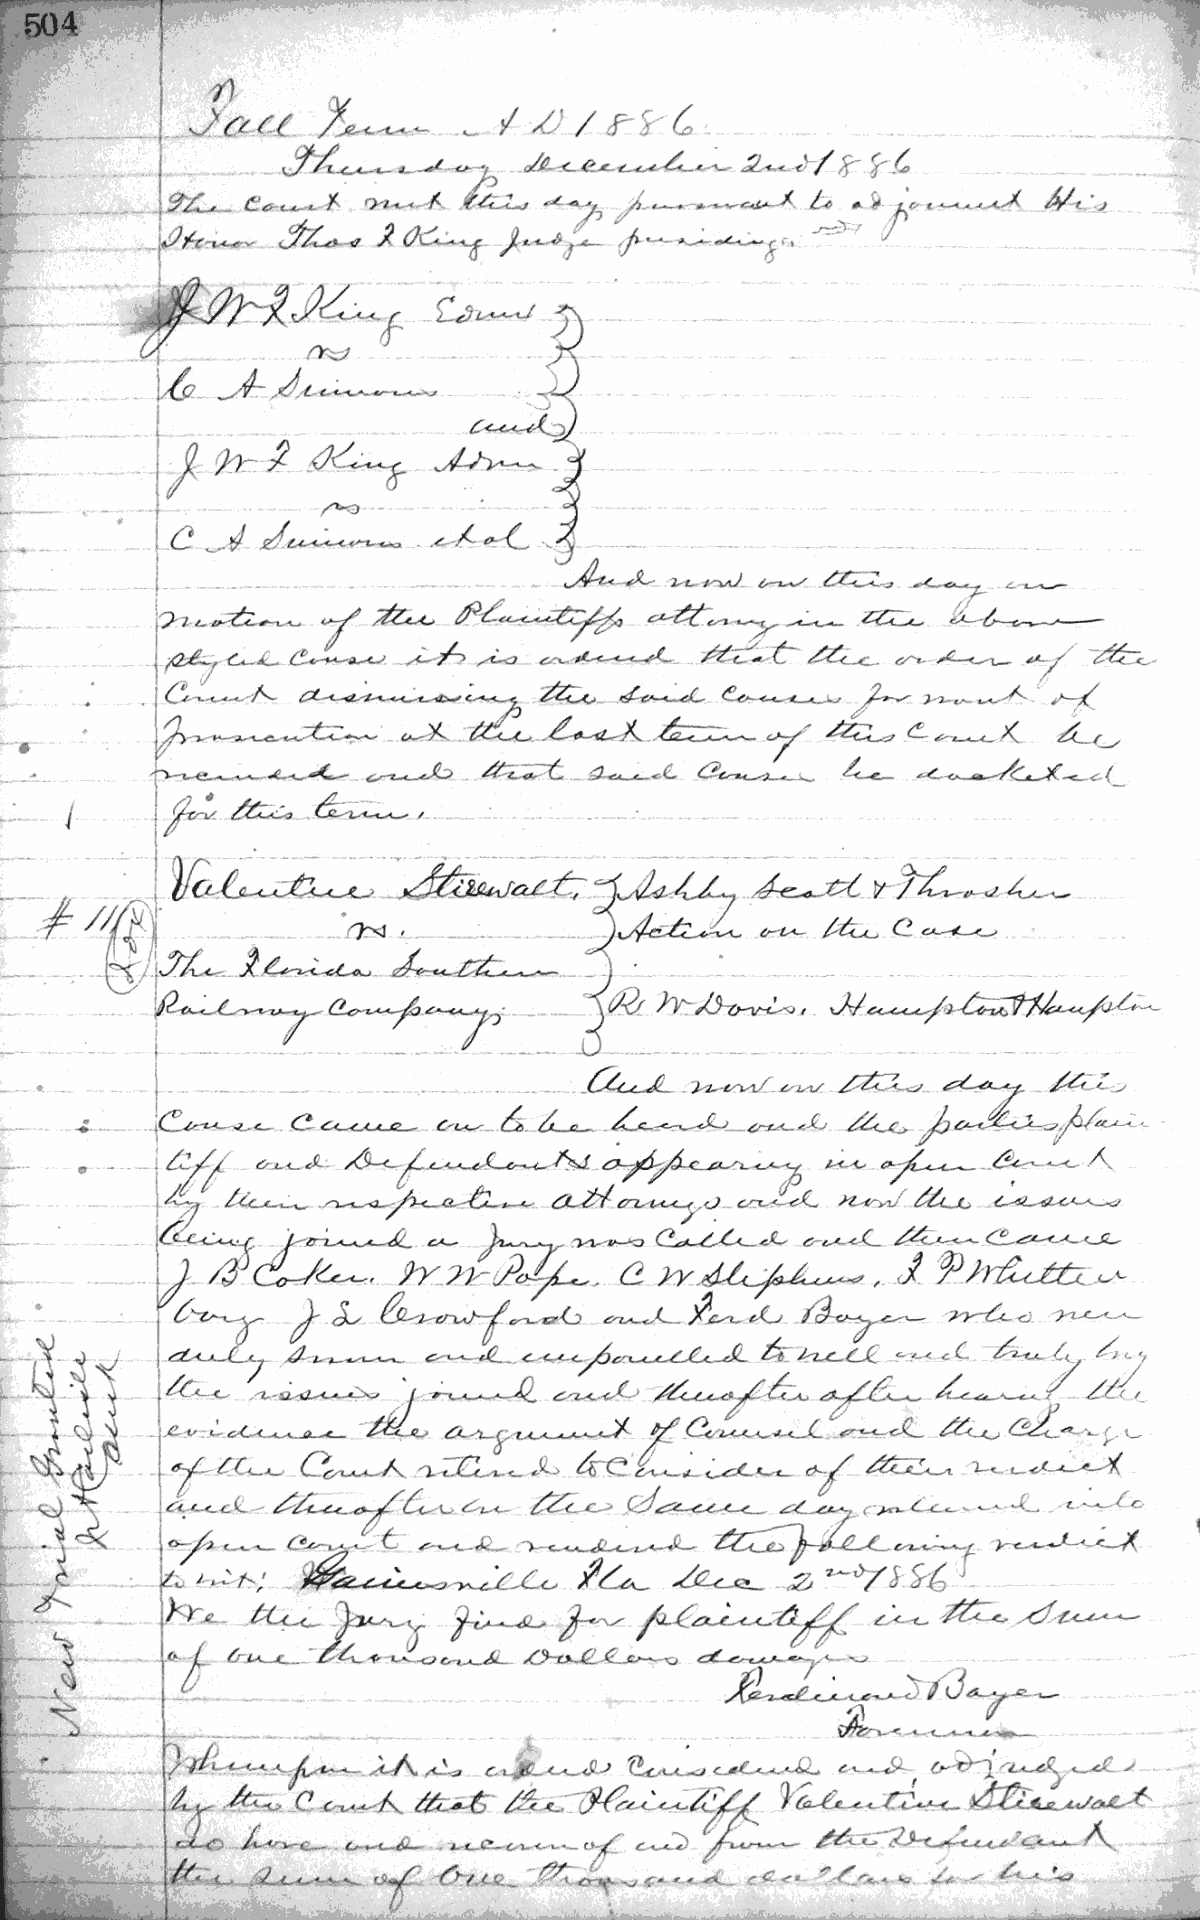 504
Fall Term A D 1886
Thursday December 2nd 1886
The Court met this day pursuant to adjournmt His
Honor Thos F King Judge presiding.
J W F King Exmr
vs
C A Simmons
and
J W F King Admr
vs
C A Simmons et al
And now on this day on
motion of the Plaintiffs attorny in the above
styled cause it is ordered that the order of the
Court dismissing the said causes for want of
prosecution at the last term of this Court be
rescinded and that said causes be docketed
for this term.
Valentine Stirewalt. Ashby Scott & Thrasher
# 11
vs. Action on the Case
The Florida Southern
Railway Company. R W Davis. Hampton & Hampton
And now on this day this
cause came on to be heard and the parties plain
tiff and Defendants appearing in open Court
by their respective attorneys and now the issues
being joined a Jury was called and then came
J B Coker. W W Pope. C W Stephens. F P Whitten
burg J L Crawford and Ferd Bayer who were
duly sworn and empanelled to well and truly try
the issues joined and thereafter after hearing the
evidence the argument of Counsel and the Charge
of the Court retired to consider of their verdict
and thereafter on the same day returned into
open court and rendered the following verdict
to wit: Gainesville Fla Dec 2nd 1886
We the Jury find for plaintiff in the sum
of one thousand Dollars damages
Ferdinand Bayer
Foreman
Whereupon it is ordered considered and adjudged
by the Court that the Plaintiff Valentine Stirewalt
do have and recover of and from the Defendant
the sum of One Thousand dollars for his
New Trial Granted